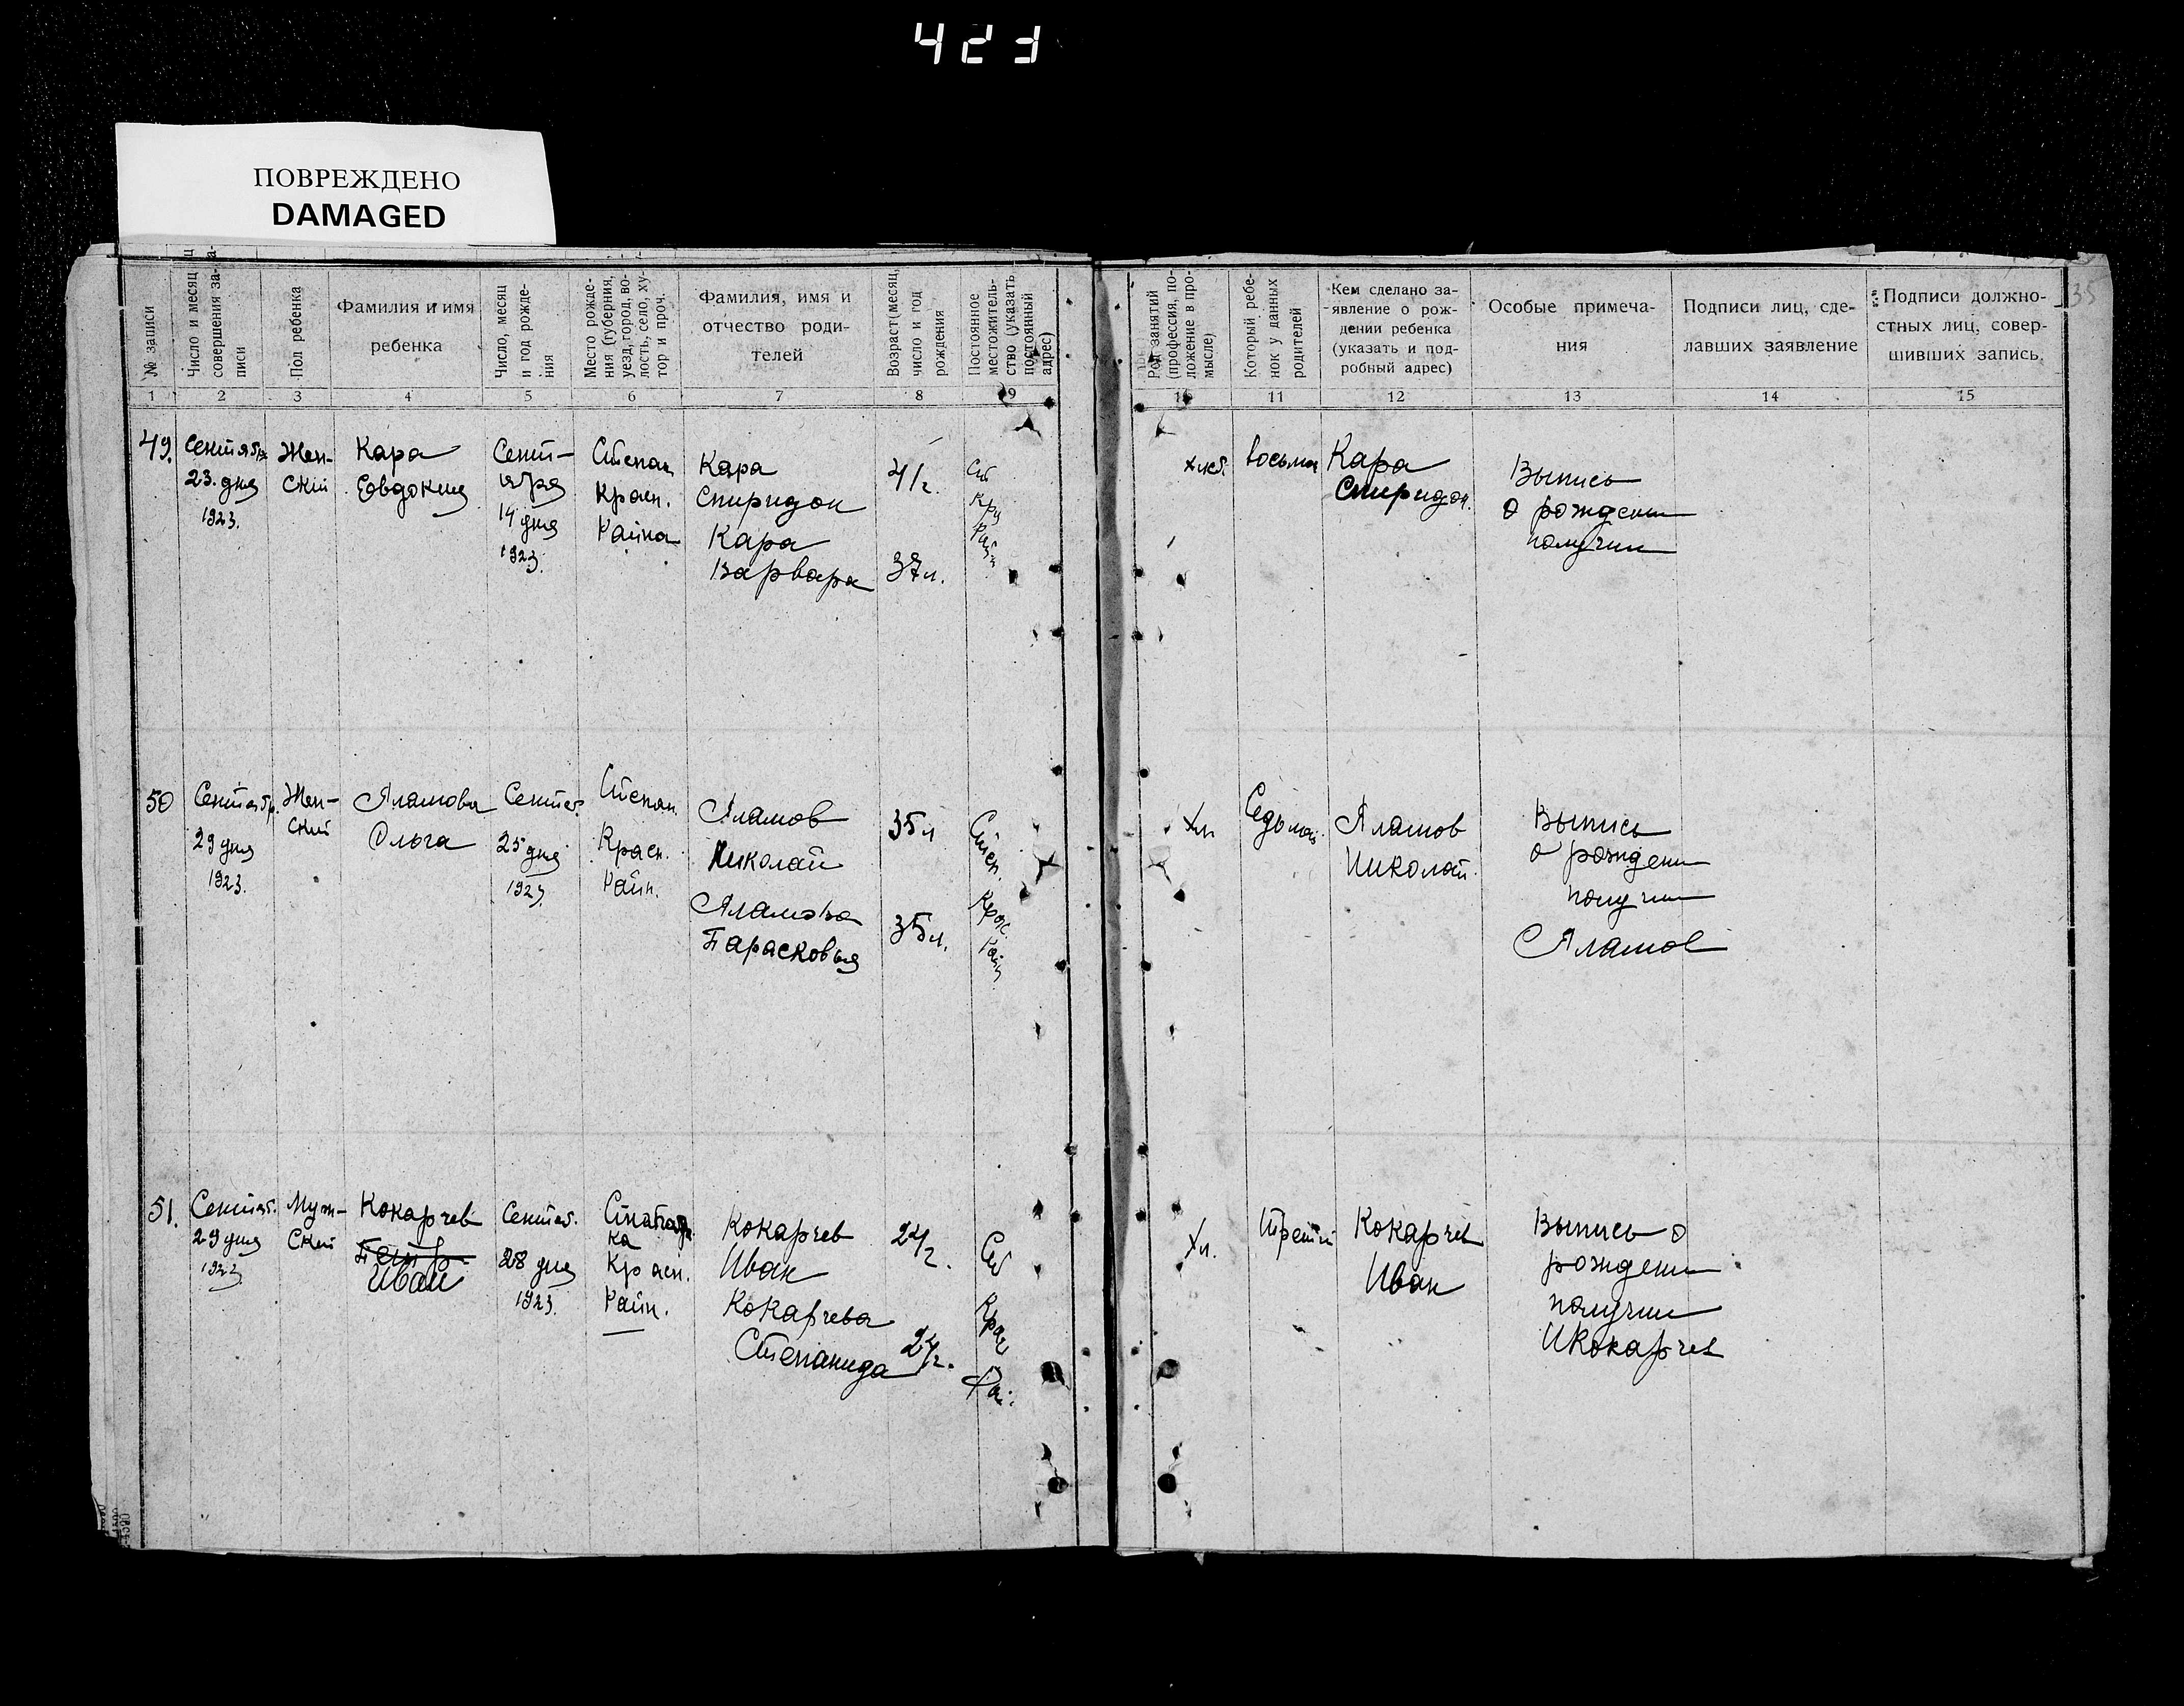 423
ПОВРЕЖДЕНО
DAMAGED
№ записи
Число и месяц
совершения за-
писи
Пол ребенка
Фамилия и имя
ребенка
Число, месяц
и год рожде-
ния
Место рожде-
ния (губерния,
уезд, город, во-
лость, село, ху-
тор и проч.
Фамилия, имя и
отчество роди-
телей
Возраст (месяц,
число и год
рождения
Постоянное
местожитель-
ство (указать
постоянный
адрес)
Род занятий
(профессия, по-
ложение в про-
мысле)
Который ребе-
нок у данных
родителей
Кем сделано за-
явление о рож-
дении ребенка
(указать и под-
робный адрес)
Особые примеча-
ния
Подписи лиц, сде-
лавших заявление
Подписи должно-
стных лиц, совер-
шивших запись.
35
1 2 3 4 5 6 7 8 9 10 11 12 13 14 15
49.
Сентября
23. дня
1923.
Жен-
ский
Кара
Евдокия
Сент-
ября
14 дня
1923.
Степан
Красн.
Района
Кара
Спиридон
Кара
Варвара
41 г.
37 л.
хлеб.
восьмой
Кара
Спиридон.
Выпись
о рождении
получил
50
Сентябр.
29 дня
1923.
Жен-
ский
Аламова
Ольга
Сентяб.
25 дня
1923.
Степан.
Красн.
Район.
Аламов
Николай
Аламова
Парасковья
35 л
35 л.
Степ.
Крас.
Рай
Хл.
Седьмой.
Аламов
Николай.
Выпись
о рождении
получил
Аламов
51.
Сентяб.
29 дня
1923
Муж-
ский
Кокарчев
Петр
Иван
Сентяб.
28 дня
1923.
Красн.
Район.
Кокарчев
Иван
Кокарчева
Степанида
24 г.
24 г.
Хл.
третий
Кокарчев
Иван
Выпись о
рождении
получил
ИКокарчев